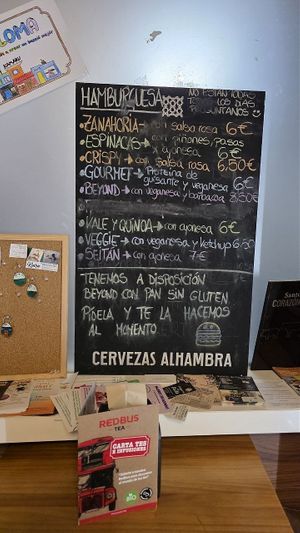 LOMA
HAMBURGUESA
NO ESTÁN TODAS
TODOS LOS DÍAS
PREGUNTANOS
• ZANAHORIA → con salsa rosa 6€
• ESPINACAS → con piñones, pasas
y ajonesa 6€
• CRISPY → con salsa rosa 6.50€
• GOURMET → Proteina de
guisante y veganesa 6€
• BEYOND → con veganesa y barbacoa 8,50€
• KALE Y QUINOA → con ajonesa 6€
• VEGGIE → con veganessa y Ketchup 6.50
• SEITÁN → con ajonesa 7€
TENEMOS A DISPOSICIÓN
BEYOND CON PAN SIN GLUTEN
PÍDELA Y TE LA HACEMOS
AL MOMENTO
CERVEZAS ALHAMBRA
CORAZÓN
REDBUS
TEA
CARTA TES
E INFUSIONES
BIO